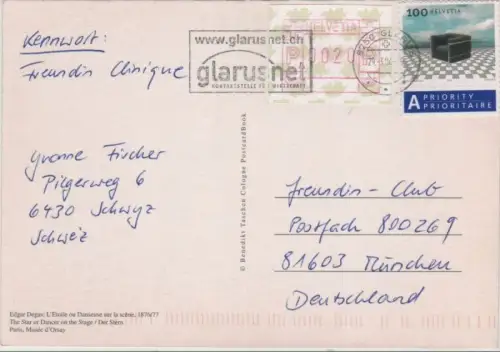 Kennwort:
Freundin Clinique
www.glarusnet.ch
glarusnet
KONTAKTSTELLE FÜR WIRTSCHAFT
HELVETIA
0020
100 HELVETIA
A PRIORITY
PRIORITAIRE
Yvonne Fischer
Pilgerweg 6
6430 Schwyz
Schweiz
© Benedikt Taschen Cologne PostcardBook
Freundin-Club
Postfach 800269
81603 München
Deutschland
Edgar Degas: L'Etoile ou Danseuse sur la scène, 1876/77
The Star or Dancer on the Stage / Der Stern
Paris, Musée d'Orsay